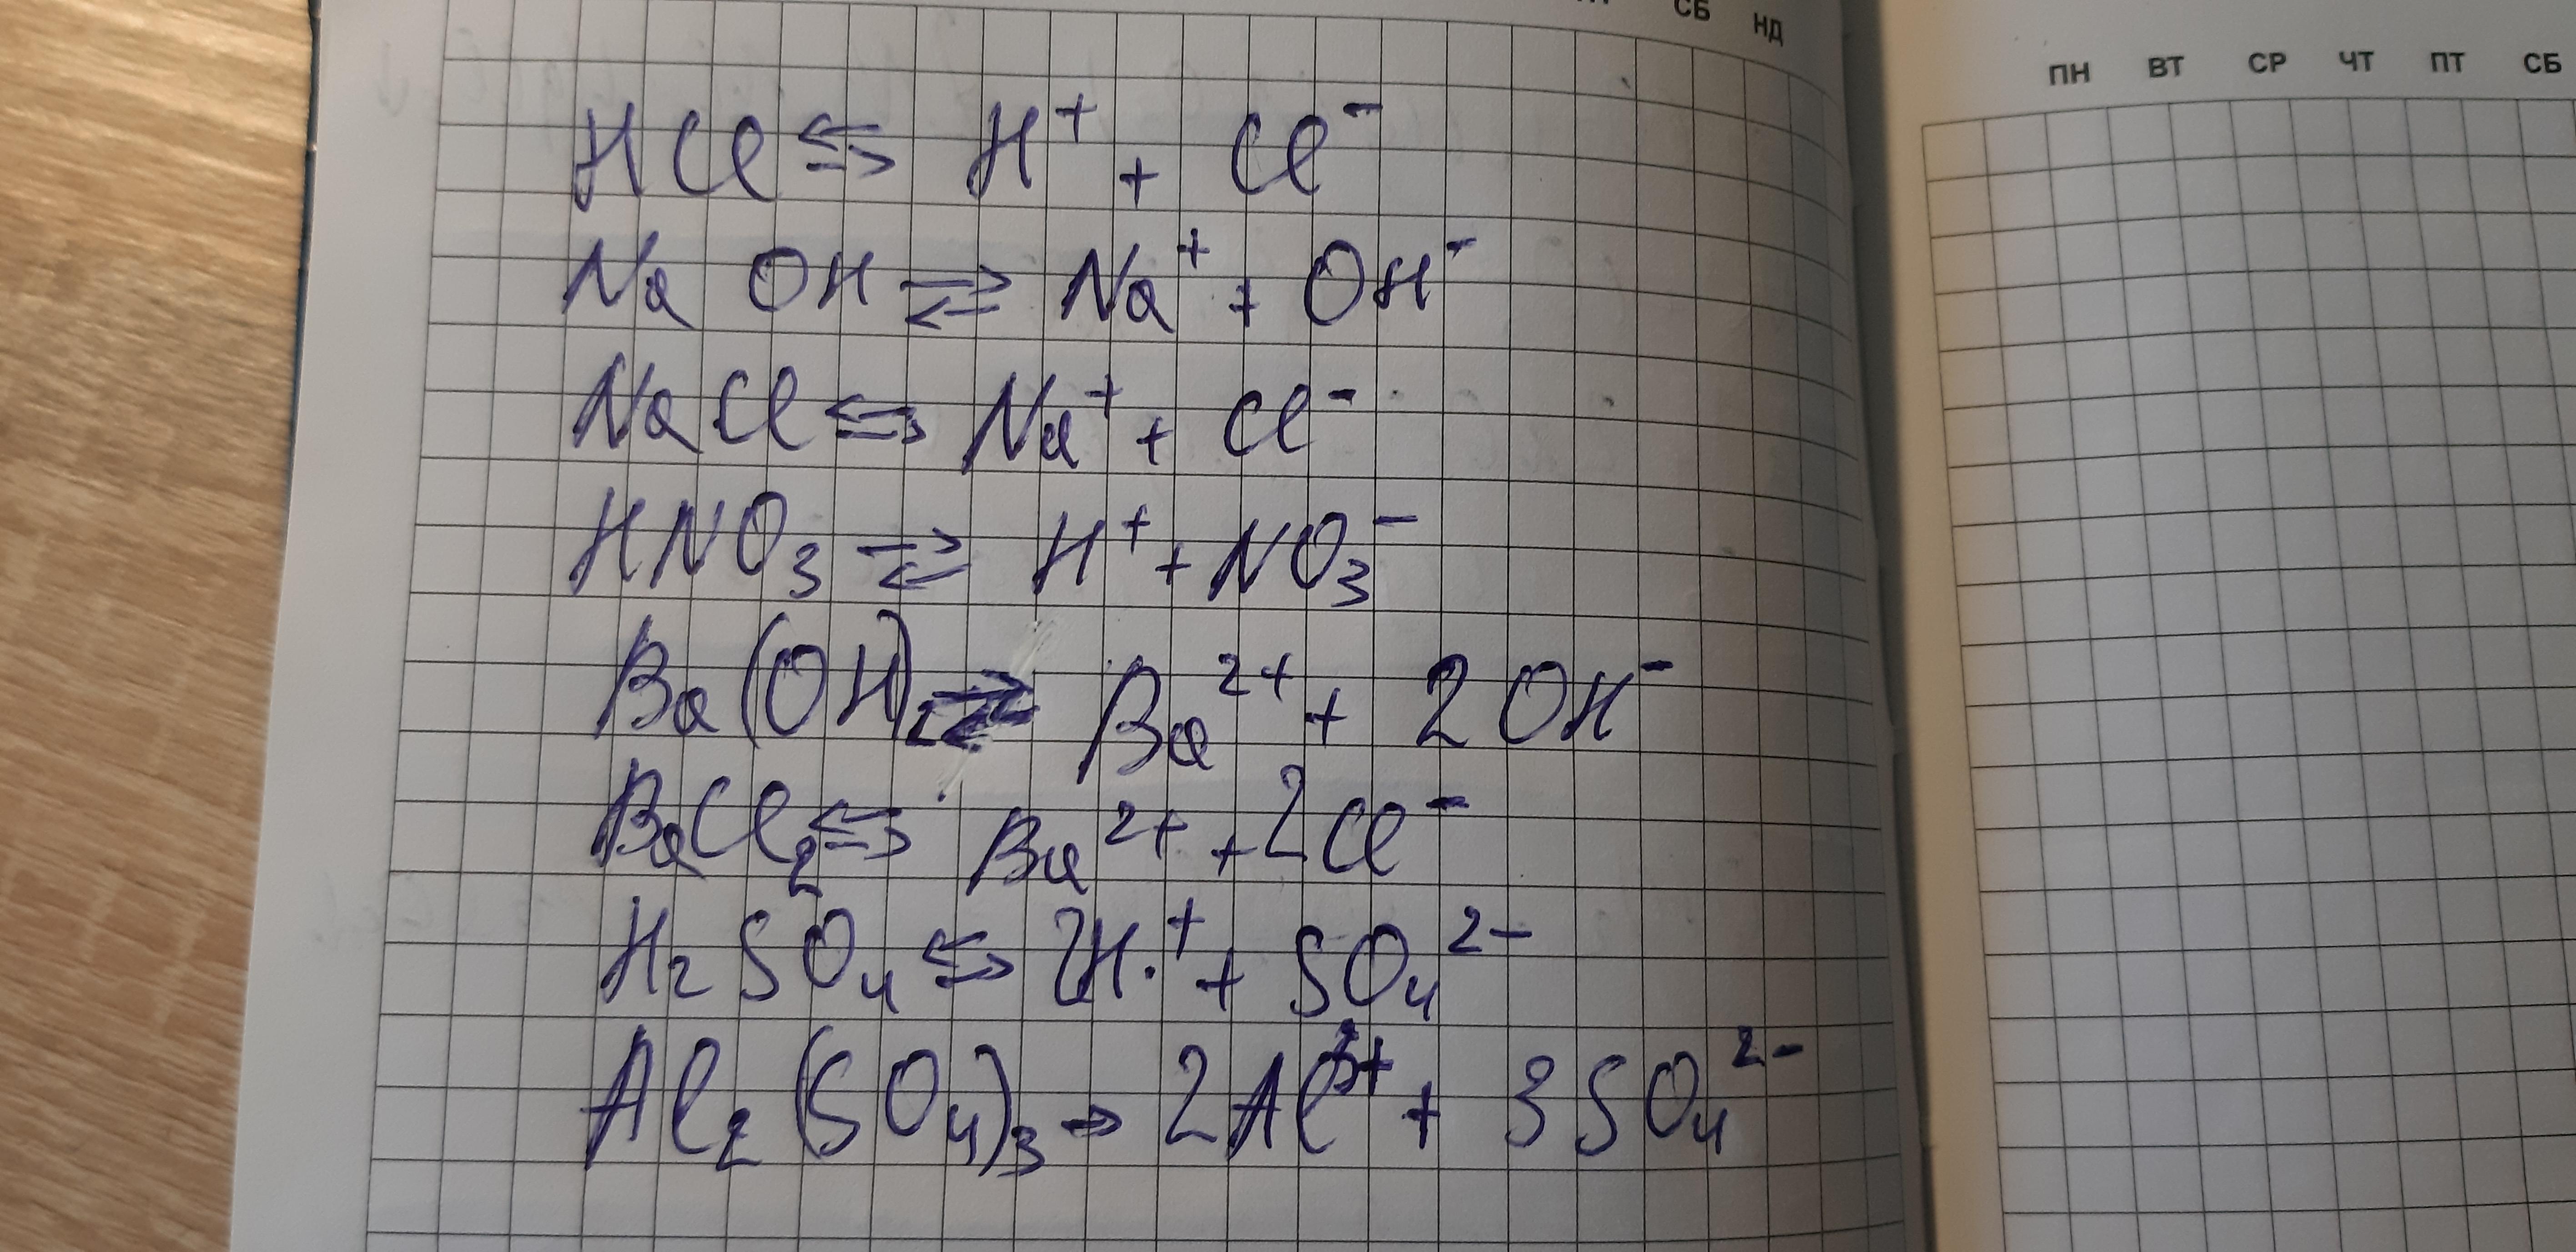 СБ НД
ПН ВТ СР ЧТ ПТ СБ
HCl ⇆ H⁺ + Cl⁻
NaOH ⇄ Na⁺ + OH⁻
NaCl ⇆ Na⁺ + Cl⁻
HNO₃ ⇄ H⁺ + NO₃⁻
Ba(OH)₂ ⇄ Ba²⁺ + 2OH⁻
BaCl₂ ⇆ Ba²⁺ + 2Cl⁻
H₂SO₄ ⇆ 2H⁺ + SO₄²⁻
Al₂(SO₄)₃ → 2Al³⁺ + 3SO₄²⁻